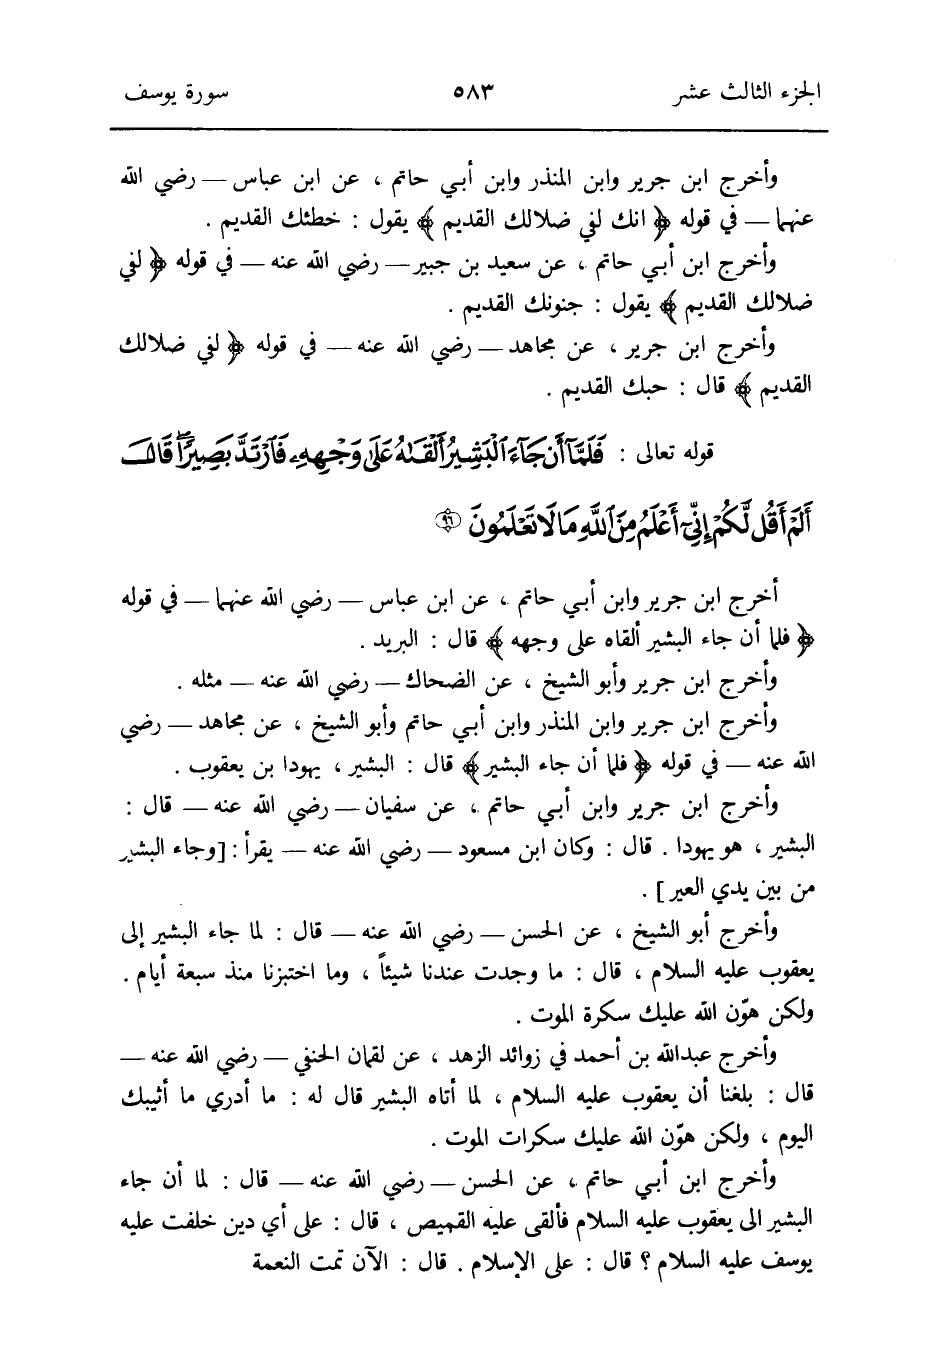 الجزء الثالث عشر ٥٨٣ سورة يوسف
وأخرج ابن جرير وابن المنذر وابن أبي حاتم ، عن ابن عباس — رضي الله
عنهما — في قوله ﴿ انك لفي ضلالك القديم ﴾ يقول : خطئك القديم .
وأخرج ابن أبي حاتم ، عن سعيد بن جبير — رضي الله عنه — في قوله ﴿ لفي
ضلالك القديم ﴾ يقول : جنونك القديم .
وأخرج ابن جرير ، عن مجاهد — رضي الله عنه — في قوله ﴿ لفي ضلالك
القديم ﴾ قال : حبك القديم .
قوله تعالى : فَلَمَّآ أَن جَآءَ ٱلْبَشِيرُ أَلْقَىٰهُ عَلَىٰ وَجْهِهِۦ فَٱرْتَدَّ بَصِيرًۭا ۖ قَالَ
أَلَمْ أَقُل لَّكُمْ إِنِّىٓ أَعْلَمُ مِنَ ٱللَّهِ مَا لَا تَعْلَمُونَ ٩٦
أخرج ابن جرير وابن أبي حاتم ، عن ابن عباس — رضي الله عنهما — في قوله
﴿ فلما أن جاء البشير ألقاه على وجهه ﴾ قال : البريد .
وأخرج ابن جرير وأبو الشيخ ، عن الضحاك — رضي الله عنه — مثله .
وأخرج ابن جرير وابن المنذر وابن أبي حاتم وأبو الشيخ ، عن مجاهد — رضي
الله عنه — في قوله ﴿ فلما أن جاء البشير ﴾ قال : البشير ، يهودا بن يعقوب .
وأخرج ابن جرير وابن أبي حاتم ، عن سفيان — رضي الله عنه — قال :
البشير ، هو يهودا . قال : وكان ابن مسعود — رضي الله عنه — يقرأ : [ وجاء البشير
من بين يدي العير ] .
وأخرج أبو الشيخ ، عن الحسن — رضي الله عنه — قال : لما جاء البشير إلى
يعقوب عليه السلام ، قال : ما وجدت عندنا شيئاً ، وما اختبزنا منذ سبعة أيام .
ولكن هوّن الله عليك سكرة الموت .
وأخرج عبدالله بن أحمد في زوائد الزهد ، عن لقمان الحنفي — رضي الله عنه —
قال : بلغنا أن يعقوب عليه السلام ، لما أتاه البشير قال له : ما أدري ما أثيبك
اليوم ، ولكن هوّن الله عليك سكرات الموت .
وأخرج ابن أبي حاتم ، عن الحسن — رضي الله عنه — قال : لما أن جاء
البشير الى يعقوب عليه السلام فألقى عليه القميص ، قال : على أي دين خلفت عليه
يوسف عليه السلام ؟ قال : على الإسلام . قال : الآن تمت النعمة